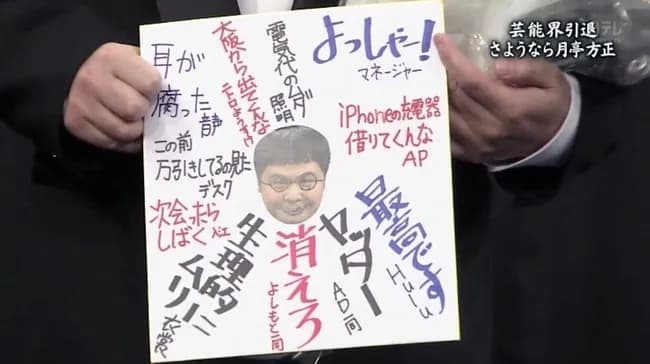 芸能界引退
さようなら月亭方正
よっしゃー!
マネージャー
電気代のムダ
照明
大阪から出てくんな
耳が
腐った
静
iPhoneの充電器
借りてくんな
AP
この前
万引きしてるの見た
デスク
次会ったら
しばく
生理的に
ムリー
衣裳
消えろ
よしもと一同
ヤッター
AD一同
最高です
Hulu